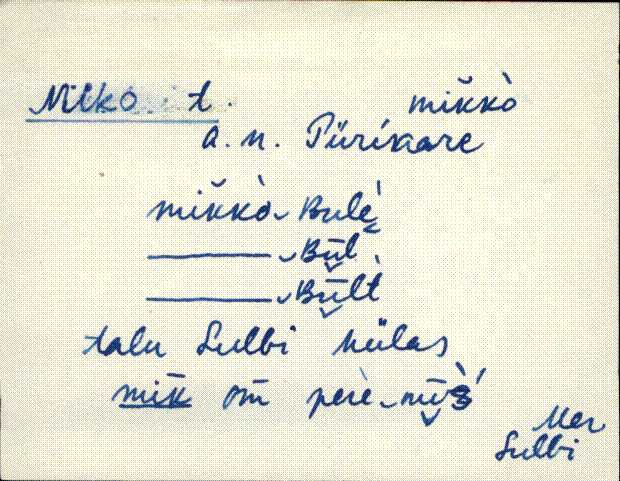 Miko. t. mik̆kò
a. n. Pürikare
mik̆kò Bulè
——— Būl
——— Būlt
talu Sulbi külas
mik̄ om perè
Mer
Sulbi